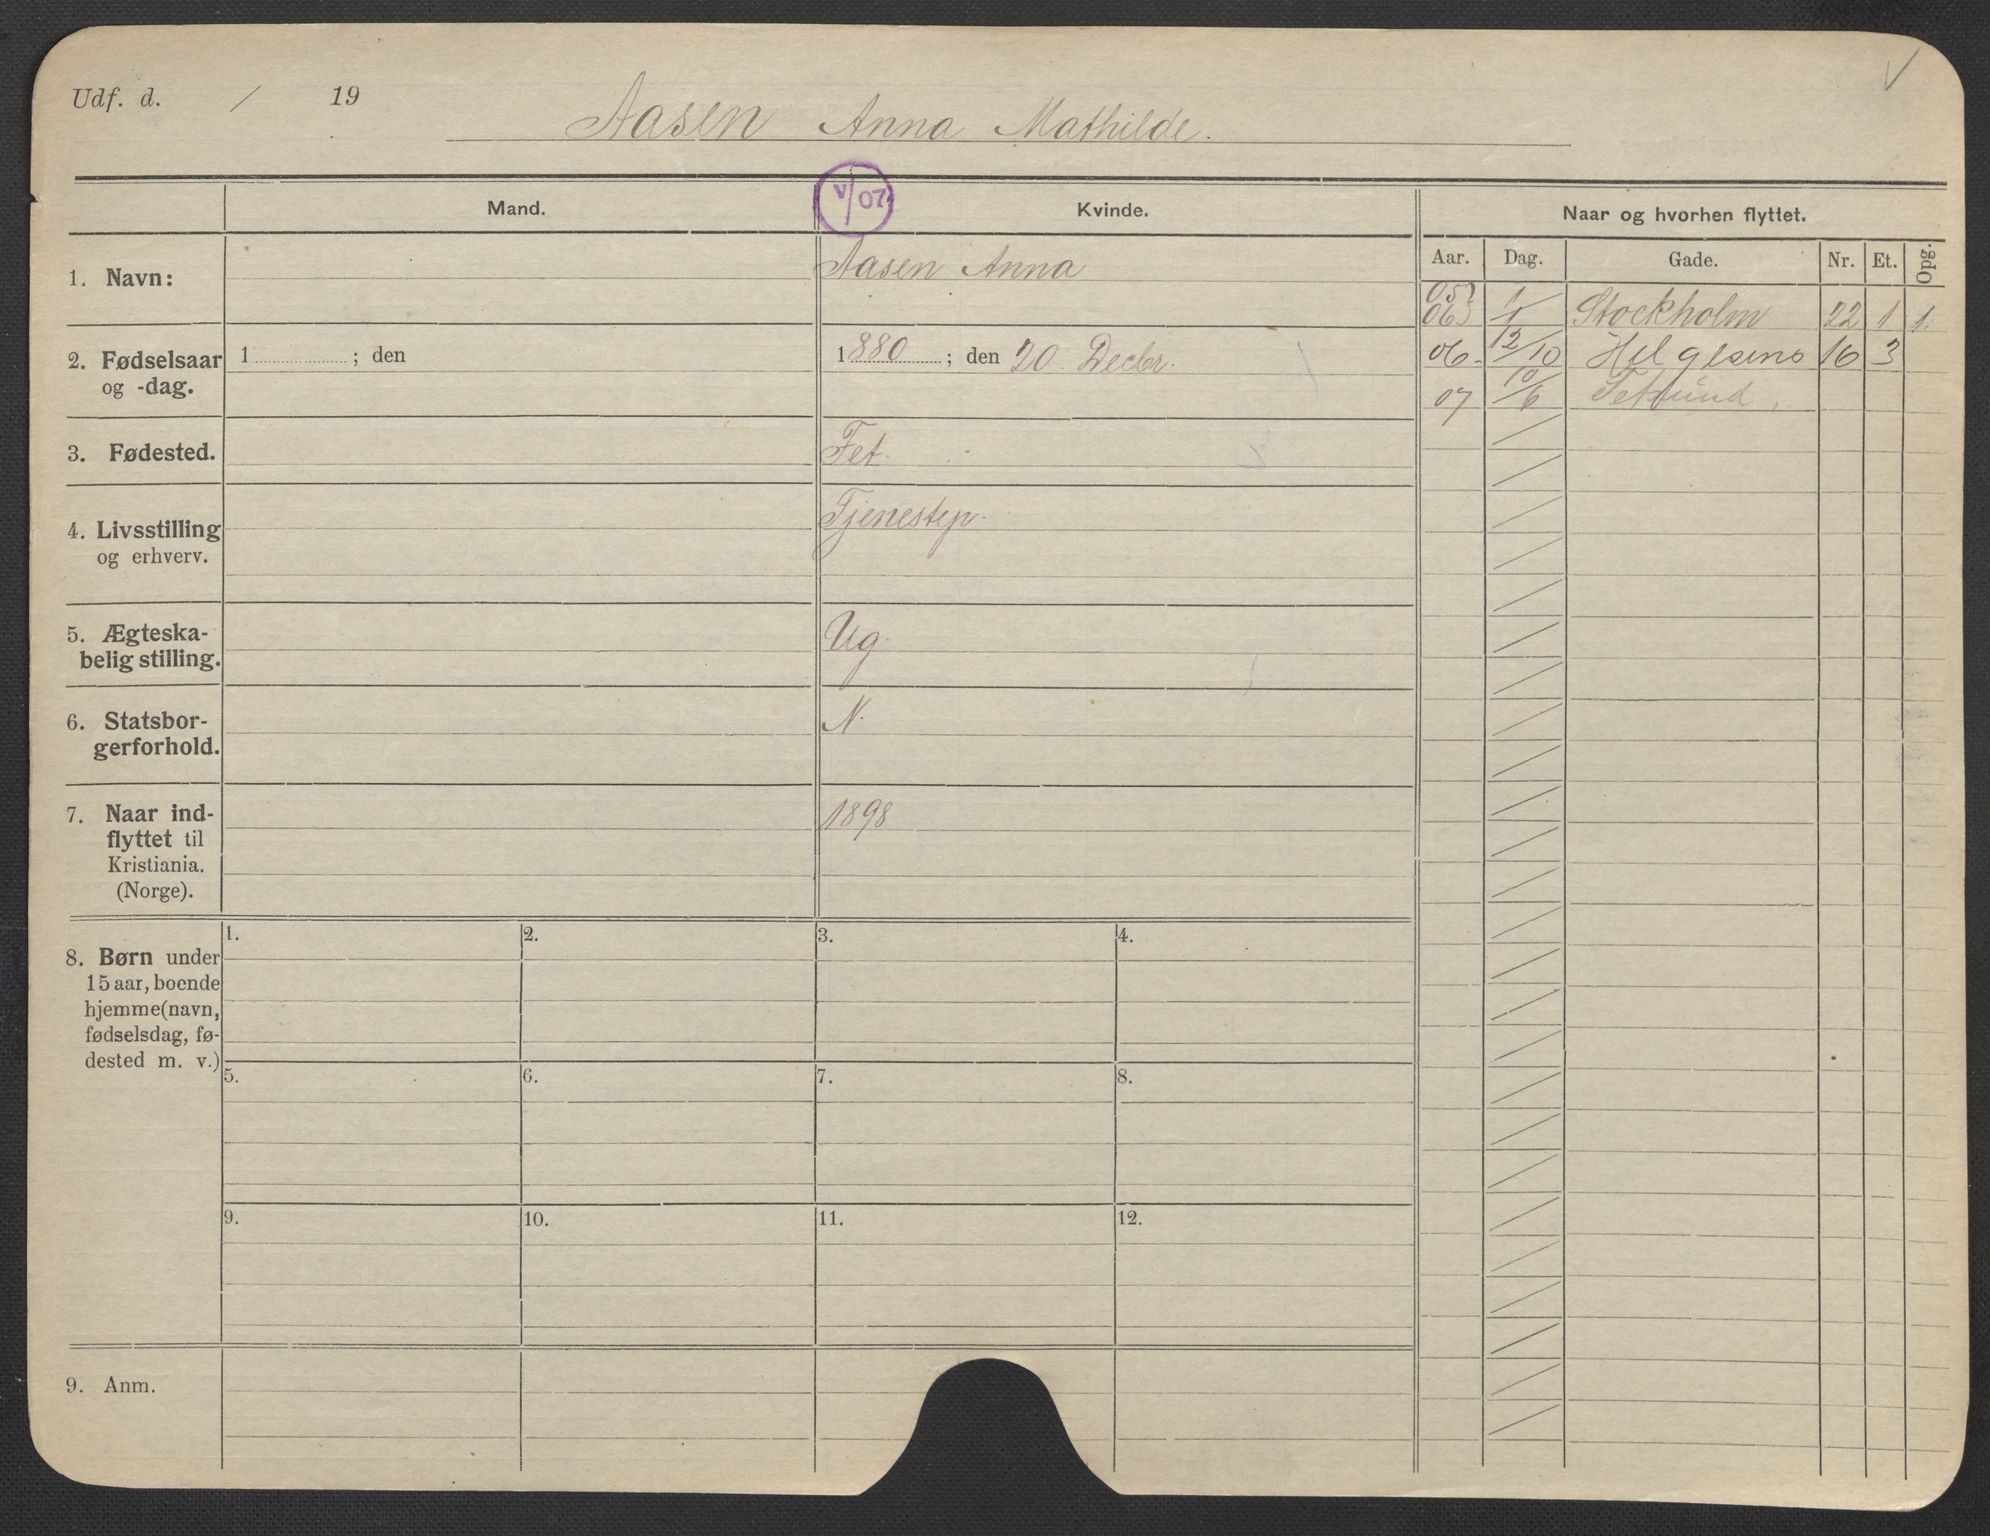 Udf. d. / 19
Aasen Anna Mathilde.
Mand.
V/07
Kvinde.
Naar og hvorhen flyttet.
Aar. Dag. Gade. Nr. Et. Opg.
1. Navn:
Aasen Anna
05
06 1/1 Stockholm 22 1 1.
2. Fødselsaar
og -dag.
1 ; den
1880 ; den 20 Decbr.
06. 12/10 Helgesens 16 3
07 10/6 Fetsund
3. Fødested.
Fet.
4. Livsstilling
og erhverv.
Tjenestep.
5. Ægteska-
belig stilling.
Ug.
6. Statsbor-
gerforhold.
N.
7. Naar ind-
flyttet til
Kristiania.
(Norge).
1898
8. Børn under
15 aar, boende
hjemme (navn,
fødselsdag, fø-
dested m. v.)
1. 2. 3. 4.
5. 6. 7. 8.
9. 10. 11. 12.
9. Anm.